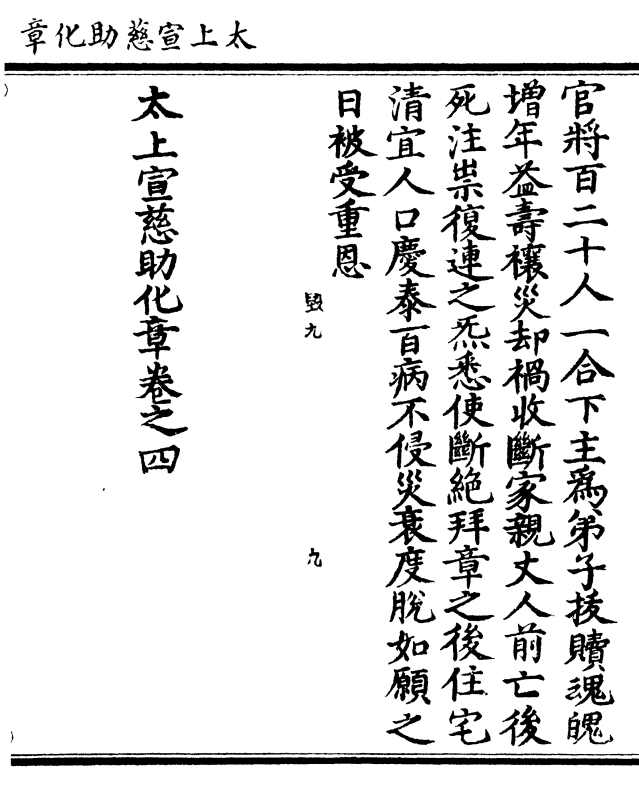 太上宣慈助化章
官將百二十人一合下主爲弟子拔贖魂魄
增年益壽禳災却禍收斷家親丈人前亡後
死注祟復連之炁悉使斷絶拜章之後住宅
清宜人口慶泰百病不侵災衰度脫如願之
日被受重恩
毀九
九
太上宣慈助化章卷之四